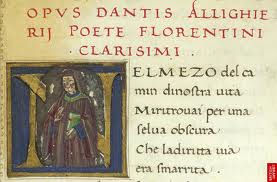 OPVS DANTIS ALLIGHIE
RIJ POETE FLORENTINI
CLARISIMI .
N
EL MEZO del ca
min dinostra uita
Miritrouai per una
selua obscura
Che ladiritta uia
era smarrita .